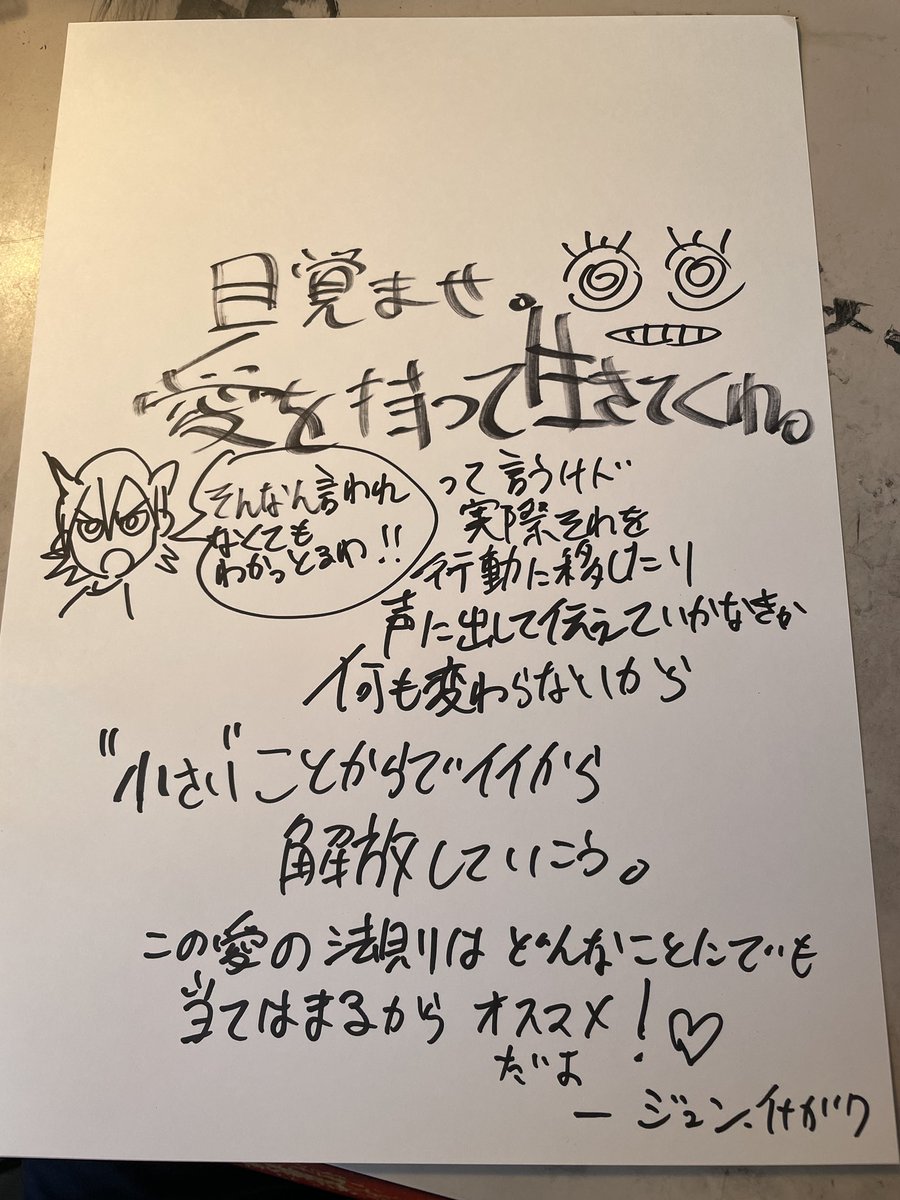 目覚ませ。
愛を持って生きてくれ。
そんなん言われ
なくても
わかっとるわ!!
って言うけど
実際それを
行動に移したり
声に出して伝えていかなきゃ
何も変わらないから
"小さい"ことからでイイから
解放していこう。
この愛の法則はどんなことにでも
当てはまるからオススメ!♡
だよ
ージュン.